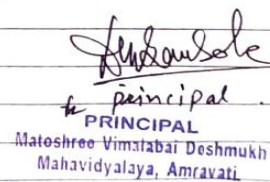 principal.
PRINCIPAL
Matoshree Vimalabai Deshmukh
Mahavidyalaya, Amravati